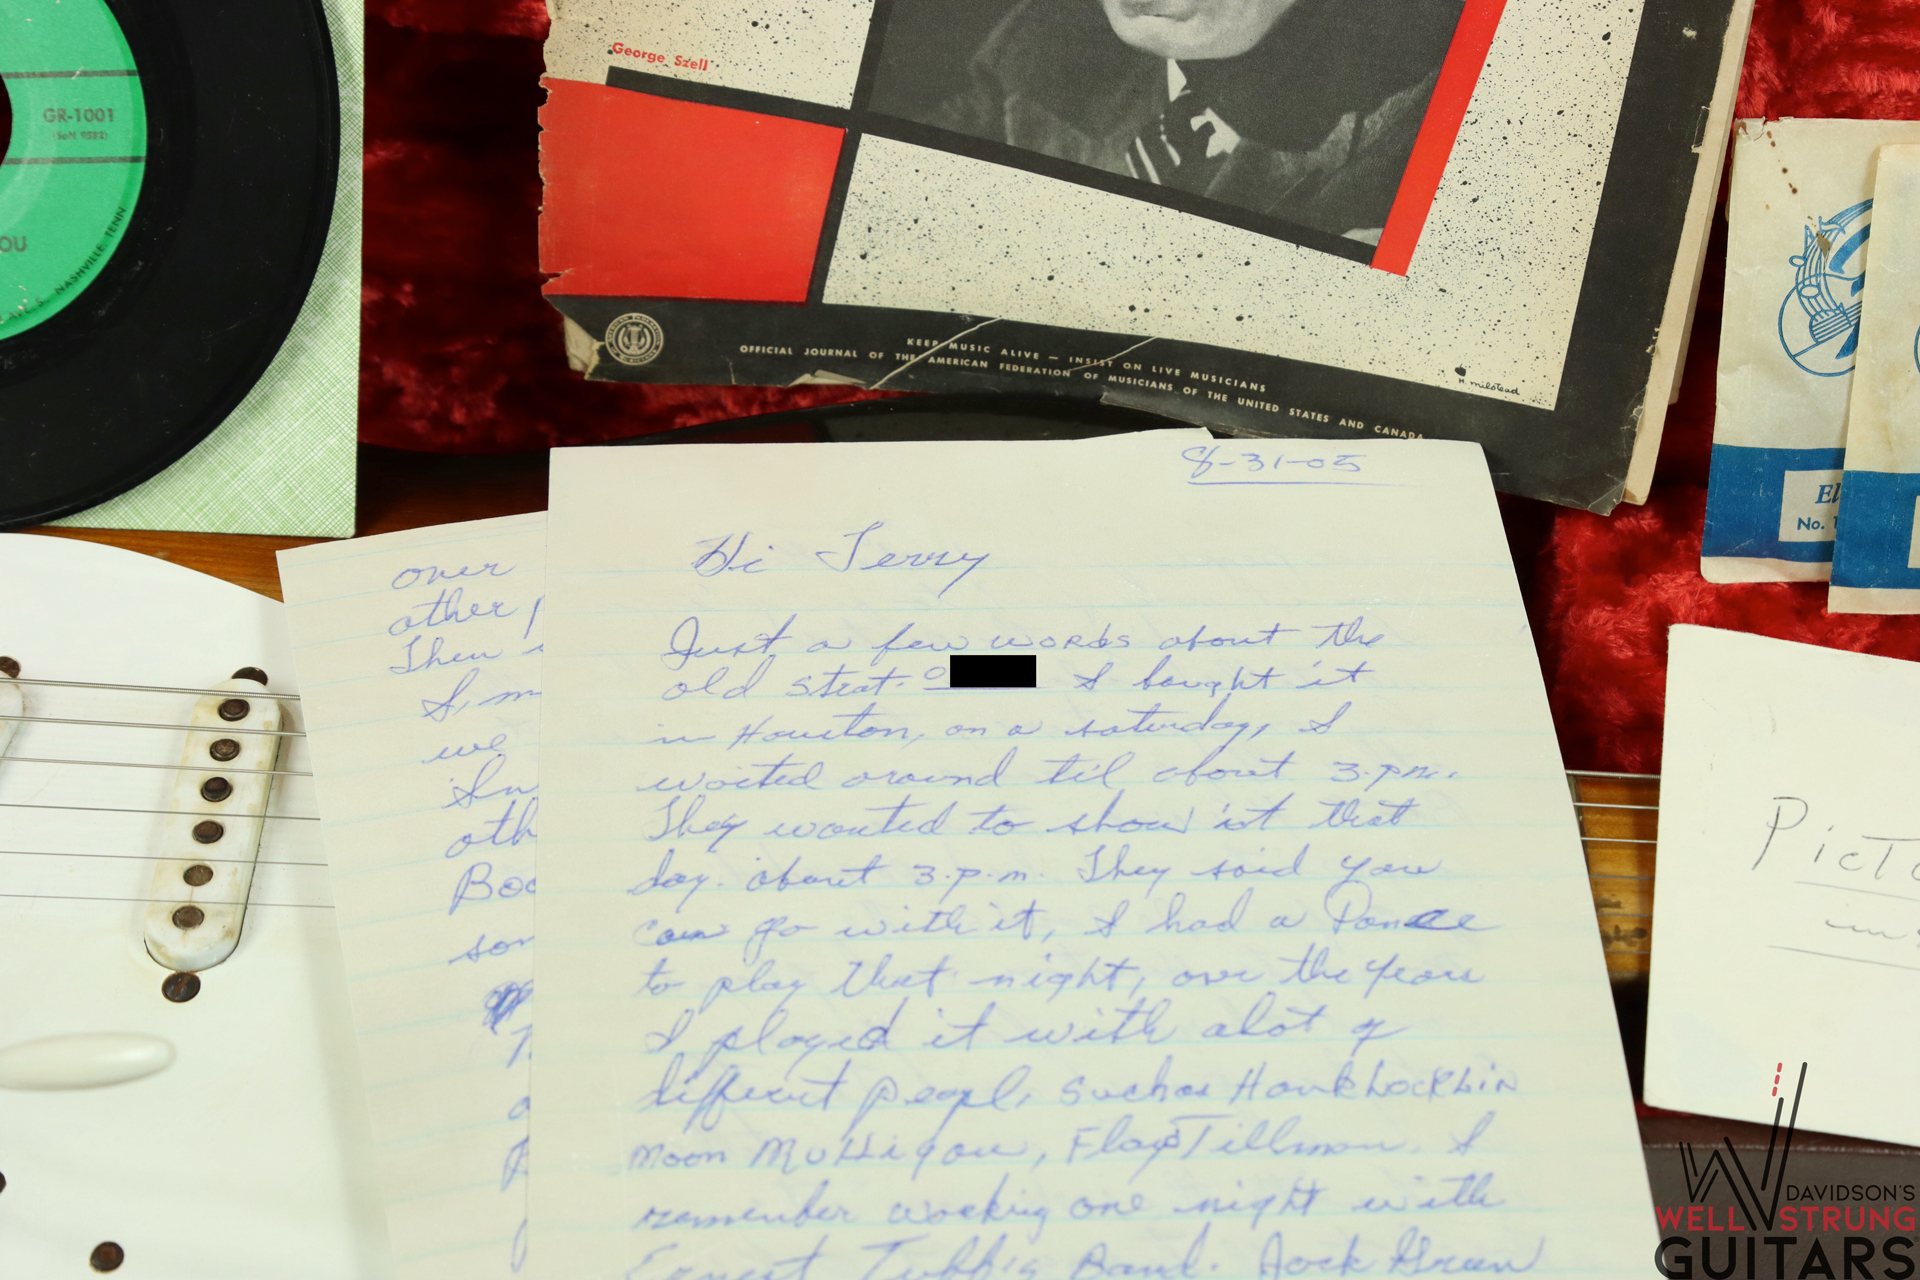 GR-1001
(SoN 9582)
OU
NASHVILLE, TENN
George Szell
KEEP MUSIC ALIVE — INSIST ON LIVE MUSICIANS
OFFICIAL JOURNAL OF THE AMERICAN FEDERATION OF MUSICIANS OF THE UNITED STATES AND CANADA
H. milstead
El
No. 1
8-31-05
Hi Terry
Just a few words about the
old strat. 0 I bought it
in Houston, on a saturday, I
waited around til about 3.pm.
They wanted to show it that
day. about 3.p.m. They said you
can go with it, I had a Dance
to play that night, over the years
I played it with alot of
different peopl, such as Hank LockLin
Moon Mulligan, Floyd Tillman. I
remember working one night with
Ernest Tubb's Band. Jack Green
over
other p
Then
I, m
we
In
oth
Boo
son
a
Pict
in
DAVIDSON'S
WELL STRUNG
GUITARS